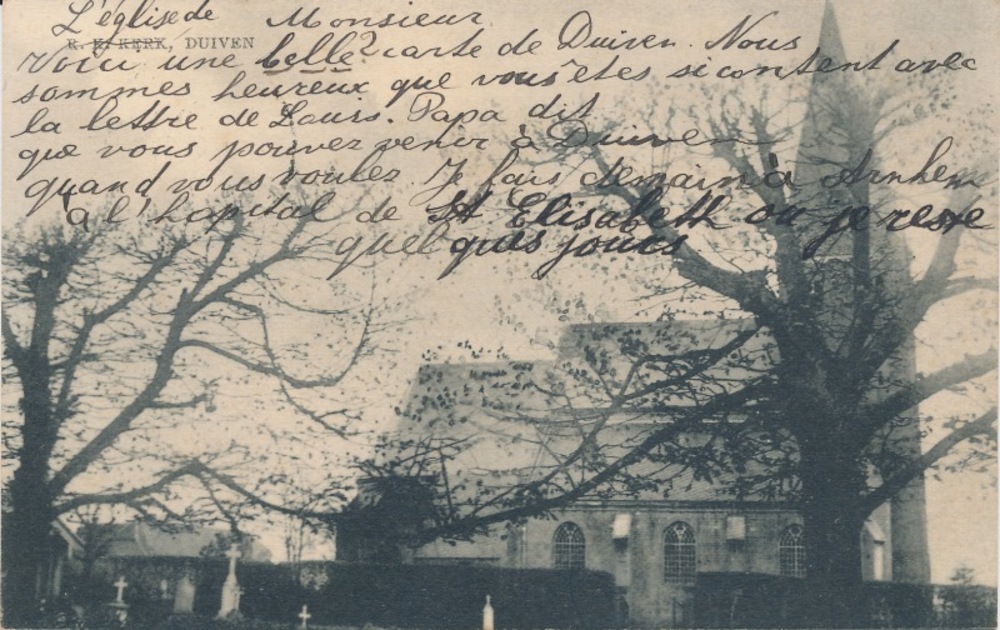 L'église de Monsieur
R. K. KERK, DUIVEN
Voici une belle? carte de Duiven. Nous
sommes heureux que vous êtes si content avec
la lettre de Louis. Papa dit
que vous pouvez venir à Duiven
quand vous voulez. Je fais demain à Arnhem
à l'hopital de St Elisabeth ou je reste
quelques jours